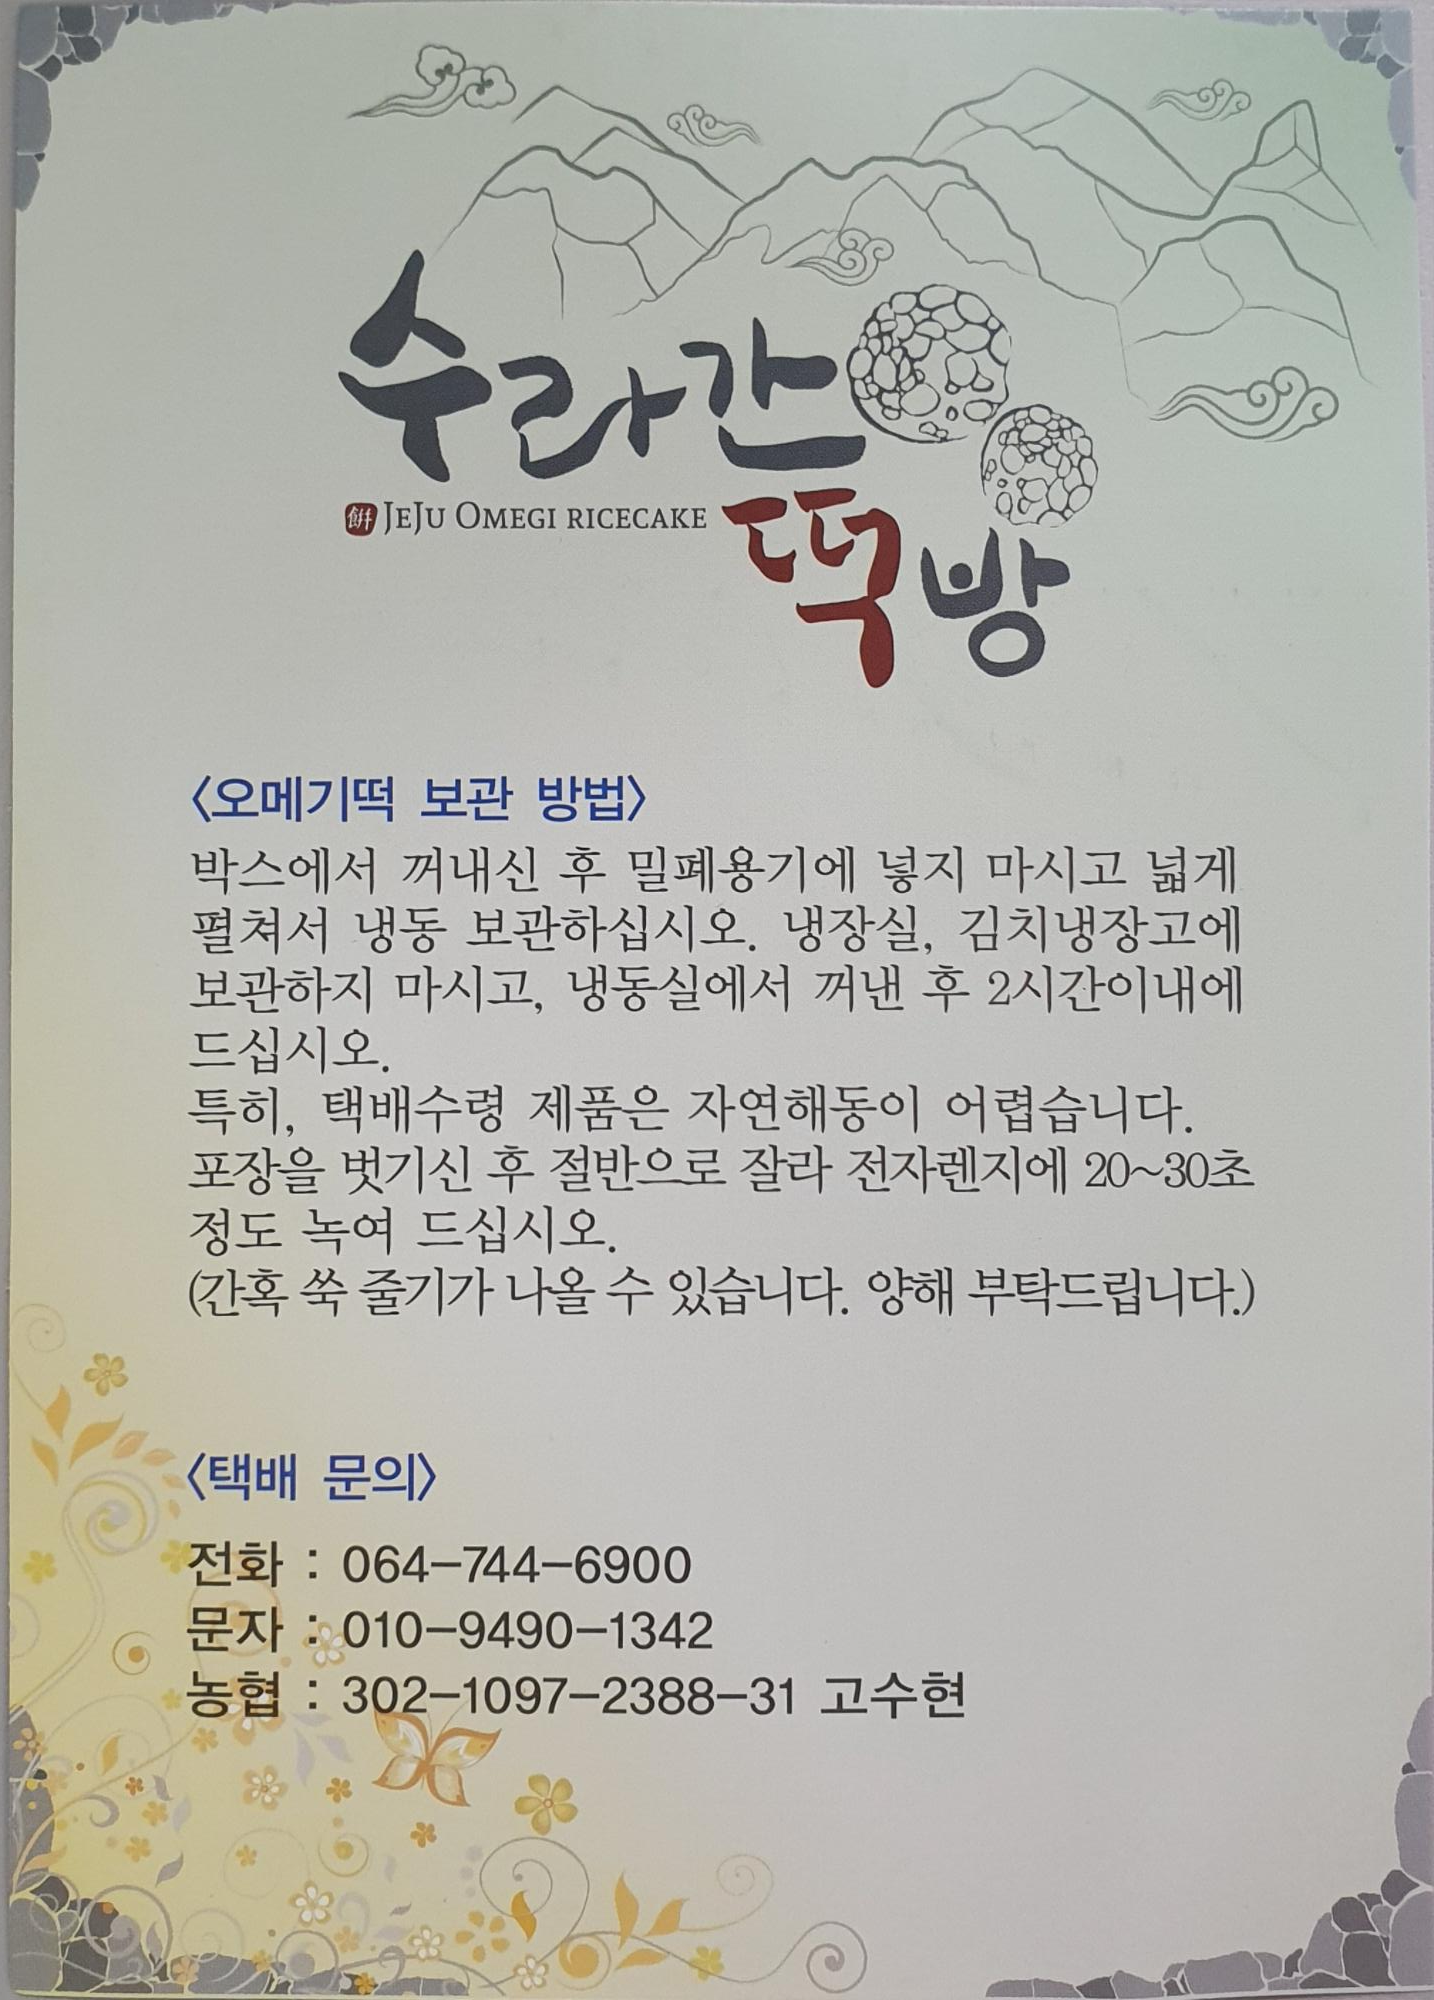 수라간
餠 JEJU OMEGI RICECAKE
떡방
<오메기떡 보관 방법>
박스에서 꺼내신 후 밀폐용기에 넣지 마시고 넓게
펼쳐서 냉동 보관하십시오. 냉장실, 김치냉장고에
보관하지 마시고, 냉동실에서 꺼낸 후 2시간이내에
드십시오.
특히, 택배수령 제품은 자연해동이 어렵습니다.
포장을 벗기신 후 절반으로 잘라 전자렌지에 20~30초
정도 녹여 드십시오.
(간혹 쑥 줄기가 나올 수 있습니다. 양해 부탁드립니다.)
<택배 문의>
전화 : 064-744-6900
문자 : 010-9490-1342
농협 : 302-1097-2388-31 고수현